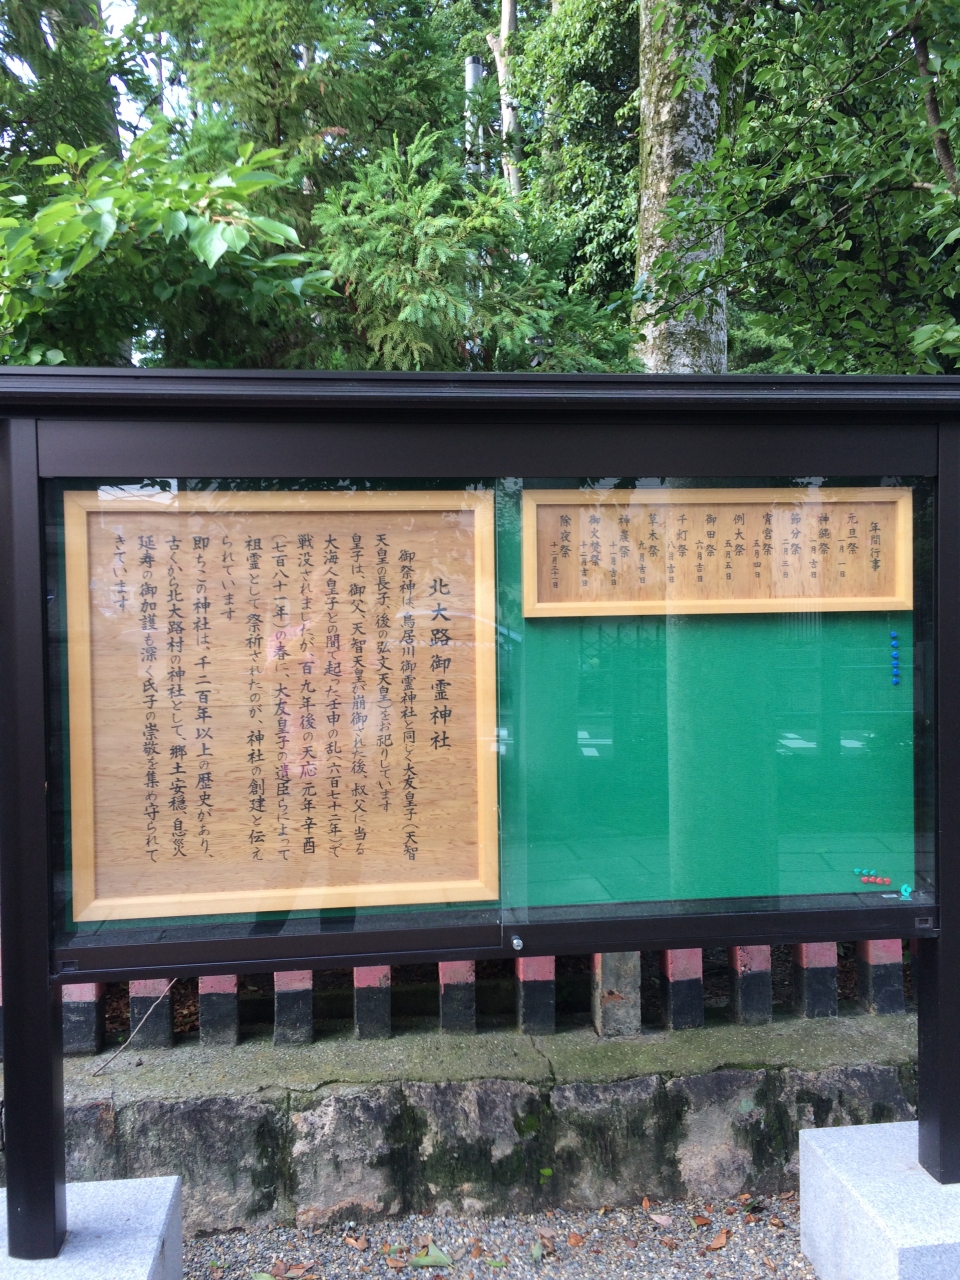 北大路御霊神社
御祭神は、鳥居川御霊神社と同じく大友皇子(天智
天皇の長子、後の弘文天皇)をお祀りしています
皇子は、御父、天智天皇が崩御された後、叔父に当る
大海人皇子との間で起った壬申の乱(六百七十二年)で
戦没されましたが、百九年後の天応元年辛酉
(七百八十一年)の春に、大友皇子の遺臣らによって
祖霊として祭祈されたのが、神社の創建と伝え
られています
即ち、この神社は、千二百年以上の歴史があり、
古くから北大路村の神社として、郷土安穏、息災
延寿の御加護も深く氏子の崇敬を集め守られて
きています
年間行事
元旦祭 一月一日
神縄祭 一月吉日
節分祭 二月三日
宵宮祭 五月四日
例大祭 五月五日
御田祭 六月吉日
千灯祭 八月吉日
草木祭 九月吉日
神農祭 十一月吉日
御火焚祭 十二月吉日
除夜祭 十二月三十一日